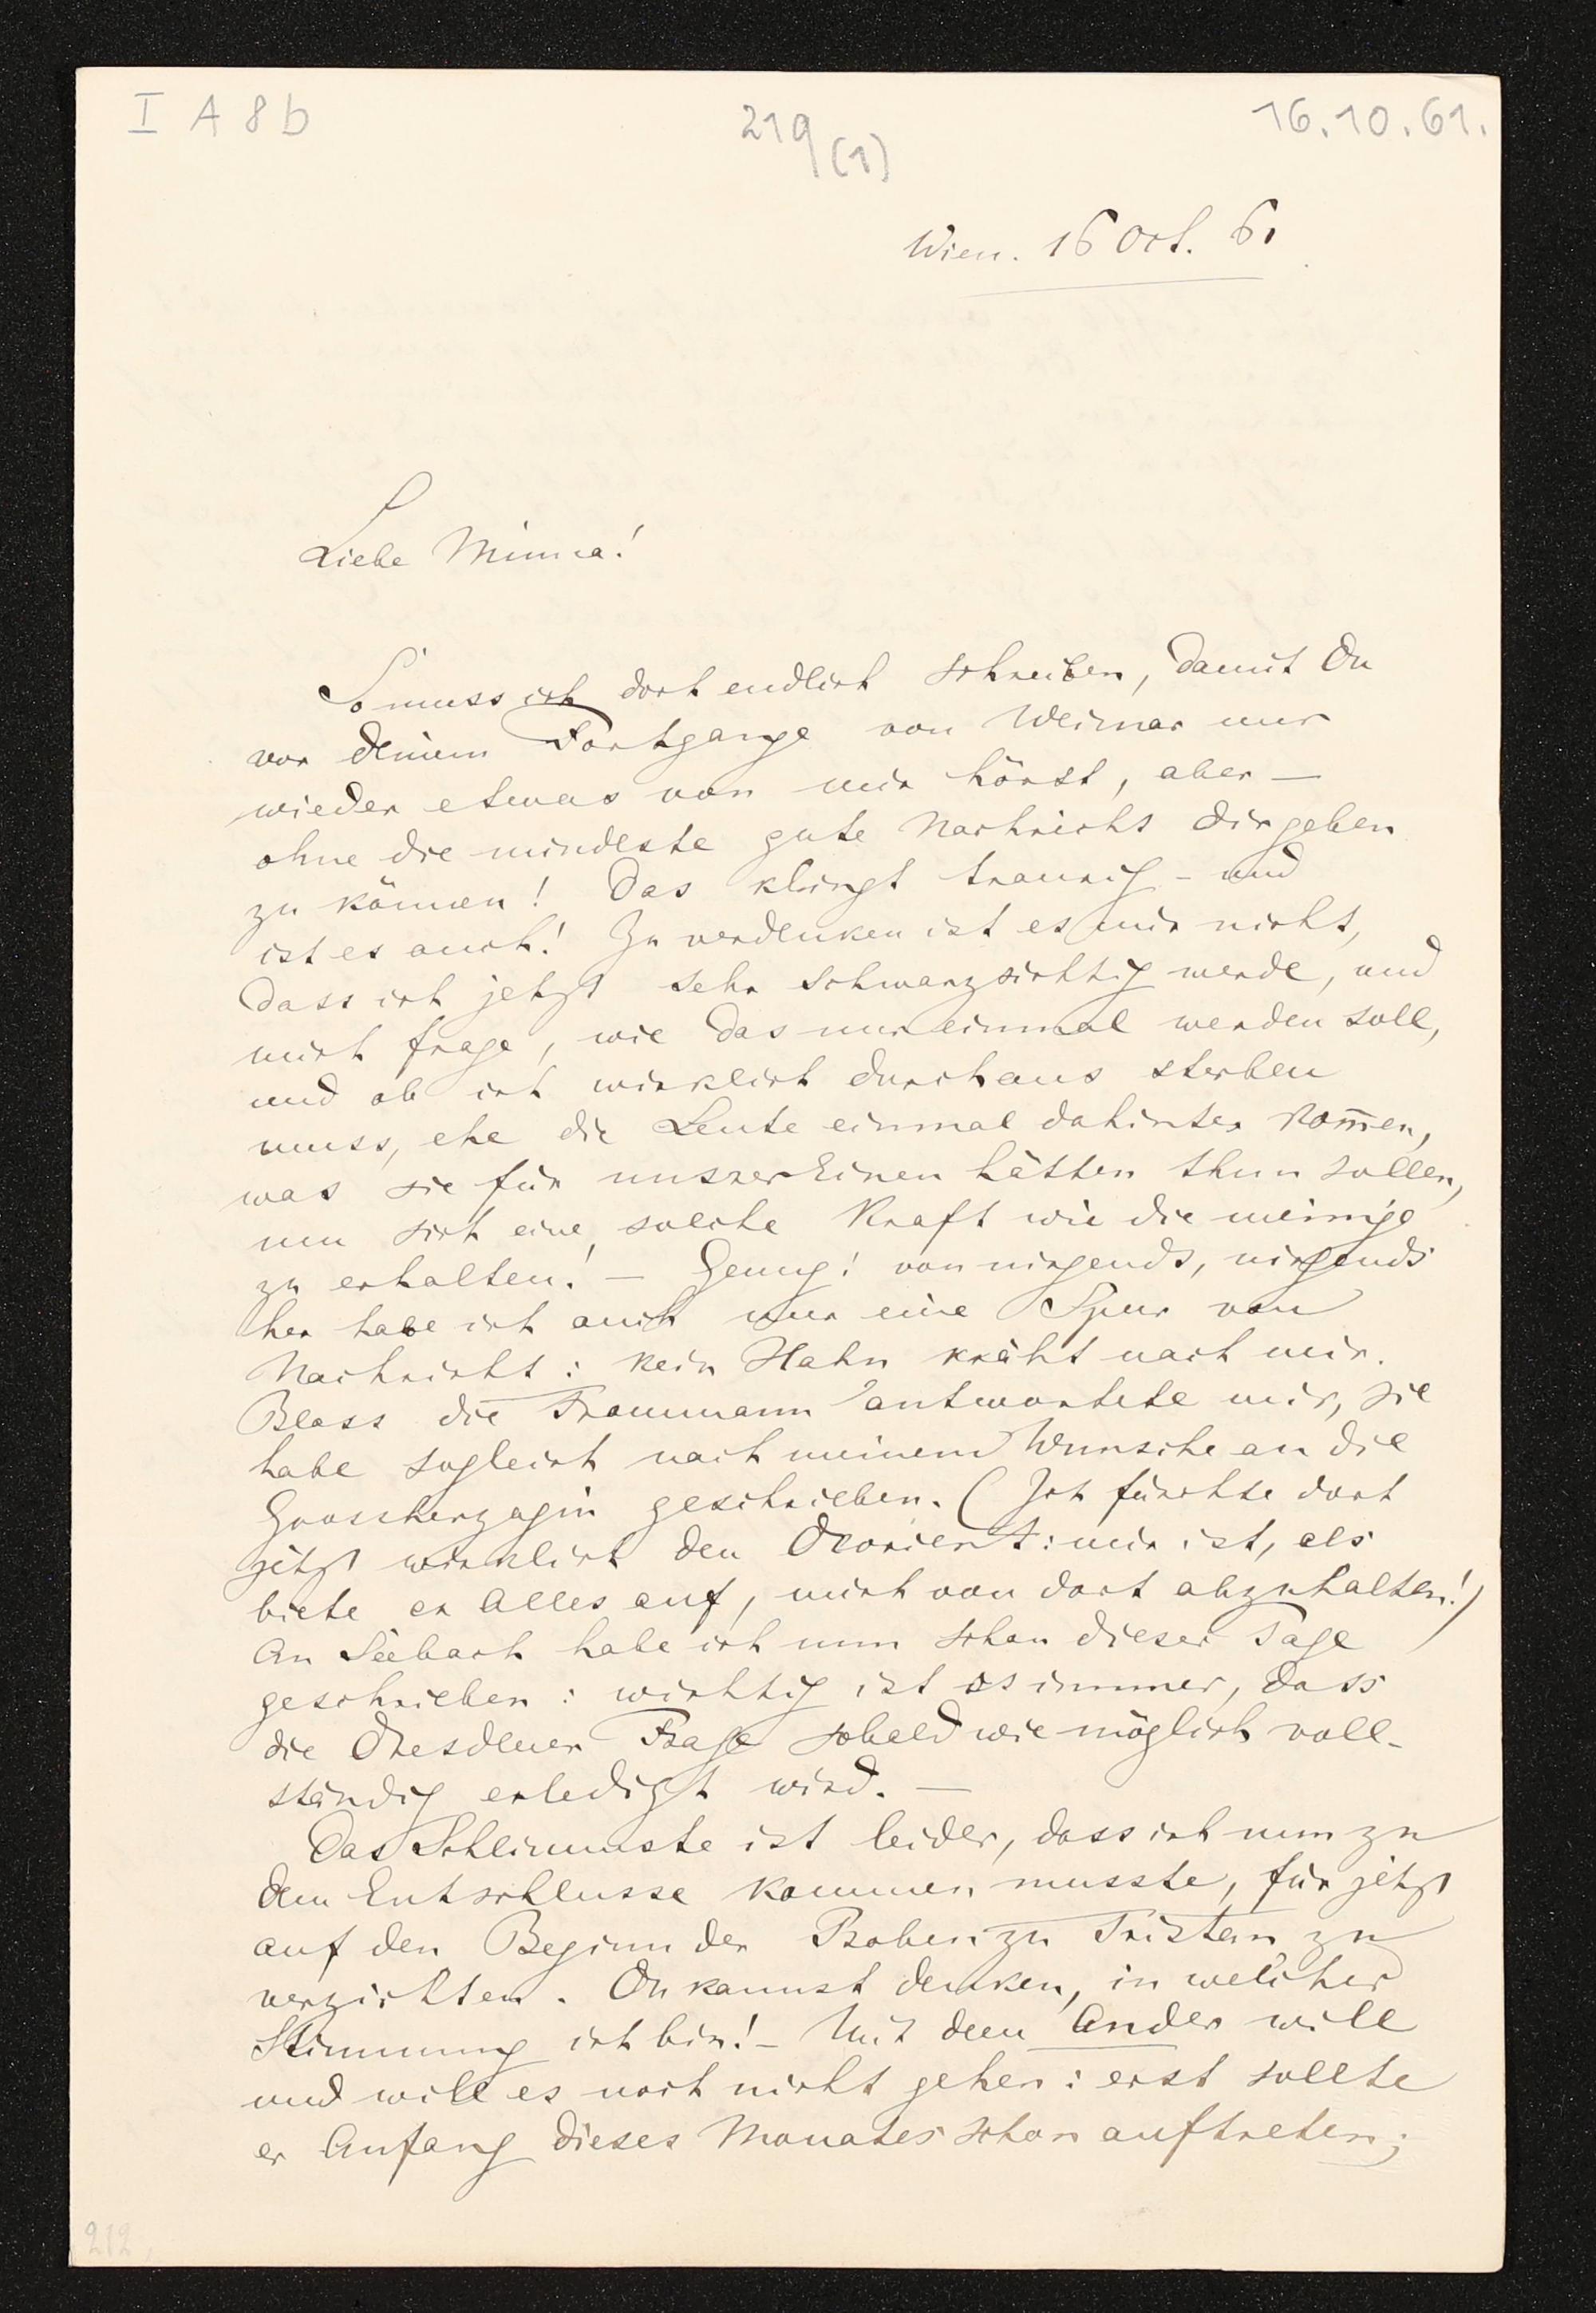 I A 8 b
219 (1)
16.10.61.
Wien. 16 Oct. 61
Liebe Minna!
So muss ich doch endlich schreiben, damit Du
vor deinem Fortgange von Weimar nur
wieder etwas von mir hörst, aber —
ohne die mindeste gute Nachricht dir geben
zu können! Das klingt traurig - und
ist es auch! Zu verdenken ist es mir nicht,
dass ich jetzt sehr schwarzsichtig werde, und
mich frage, wie das nur einmal werden soll,
und ob ich wirklich durchaus sterben
muss, ehe die Leute einmal dahinter kom̅en,
was sie für unsrer Einen hätten thun sollen,
um sich eine solche Kraft wie die meinige
zu erhalten! — Genug! von nirgends, nirgends
her habe ich auch nur eine Spur von
Nachricht: kein Hahn kräht nach mir.
Bloss die Frommann antwortete mir, sie
habe sogleich nach meinem Wunsche an die
Grossherzogin geschrieben. (Ich fürchte dort
jetzt wirklich den Devrient: mir ist, als
biete er Alles auf, mich von dort abzuhalten!)
An Seebach habe ich nun schon dieser Tage
geschrieben: wichtig ist es immer, dass
die Dresdener Frage sobald wie möglich voll-
ständig erledigt wird. —
Das Schlimmste ist leider, dass ich nun zu
dem Entschlusse kommen musste, für jetzt
auf den Beginn der Proben zu Tristan zu
verzichten. Du kannst denken, in welcher
Stimmung ich bin! - Mit dem Ander will
und will es noch nicht gehen: erst sollte
er Anfang dieses Monates schon auftreten;
212.